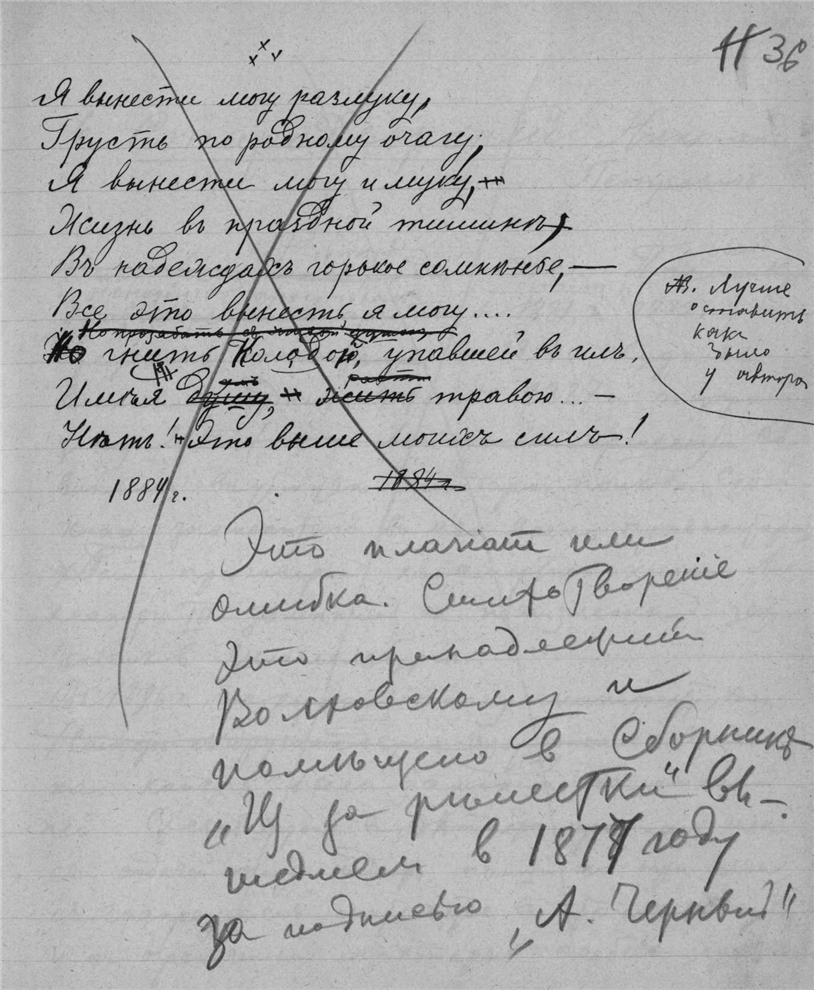 36
Я вынести могу разлуку,
Грусть по родному очагу;
Я вынести могу и муку,
Жизнь въ праздной тишинѣ,
Въ надеждахъ горькое сомнѣнье, —
Все это вынесть я могу....
Но прозябать съ живой душою
Но гнить колодою, упавшей въ илъ,
Имѣя душу, жить травою... —
Нѣтъ! Это выше моихъ силъ!
1884 г. 1884 г.
NB. Лучше
оставить
какъ
было
у автора
Это плагіат или
ошибка. Стихотвореніе
это принадлежит
Волховскому и
помѣщено в Сборникѣ
„Из за рѣшетки" вы-
шедшем в 1877 году
за подписью „А. Черный"